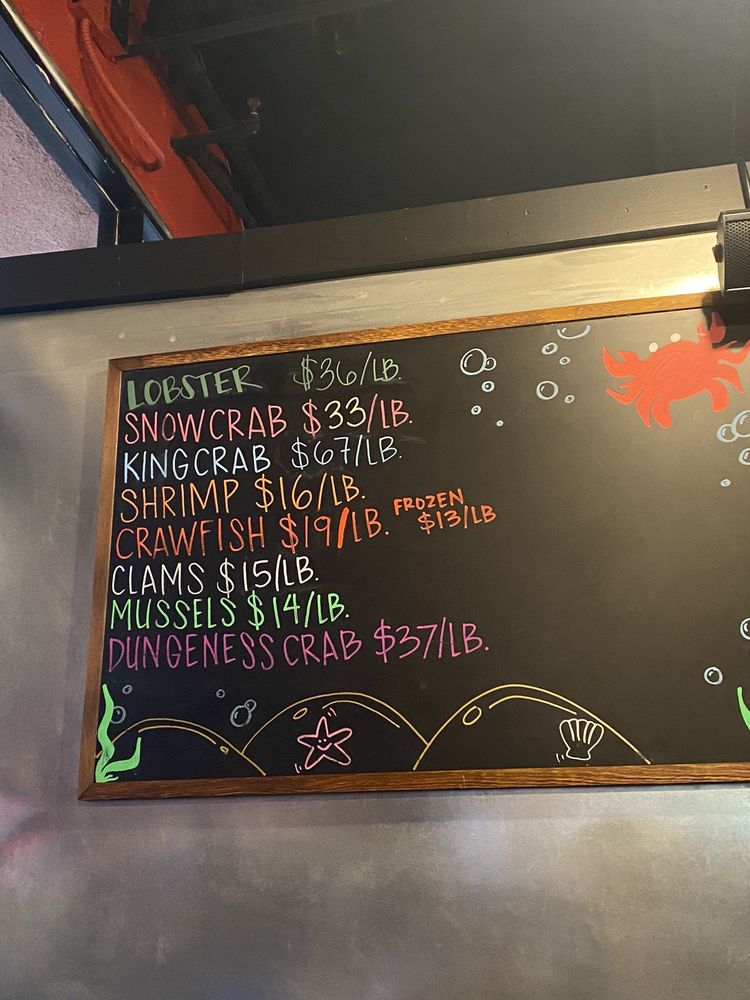 LOBSTER $36/LB.
SNOWCRAB $33/LB.
KINGCRAB $67/LB.
SHRIMP $16/LB.
CRAWFISH $19/LB. FROZEN $13/LB
CLAMS $15/LB.
MUSSELS $14/LB.
DUNGENESS CRAB $37/LB.